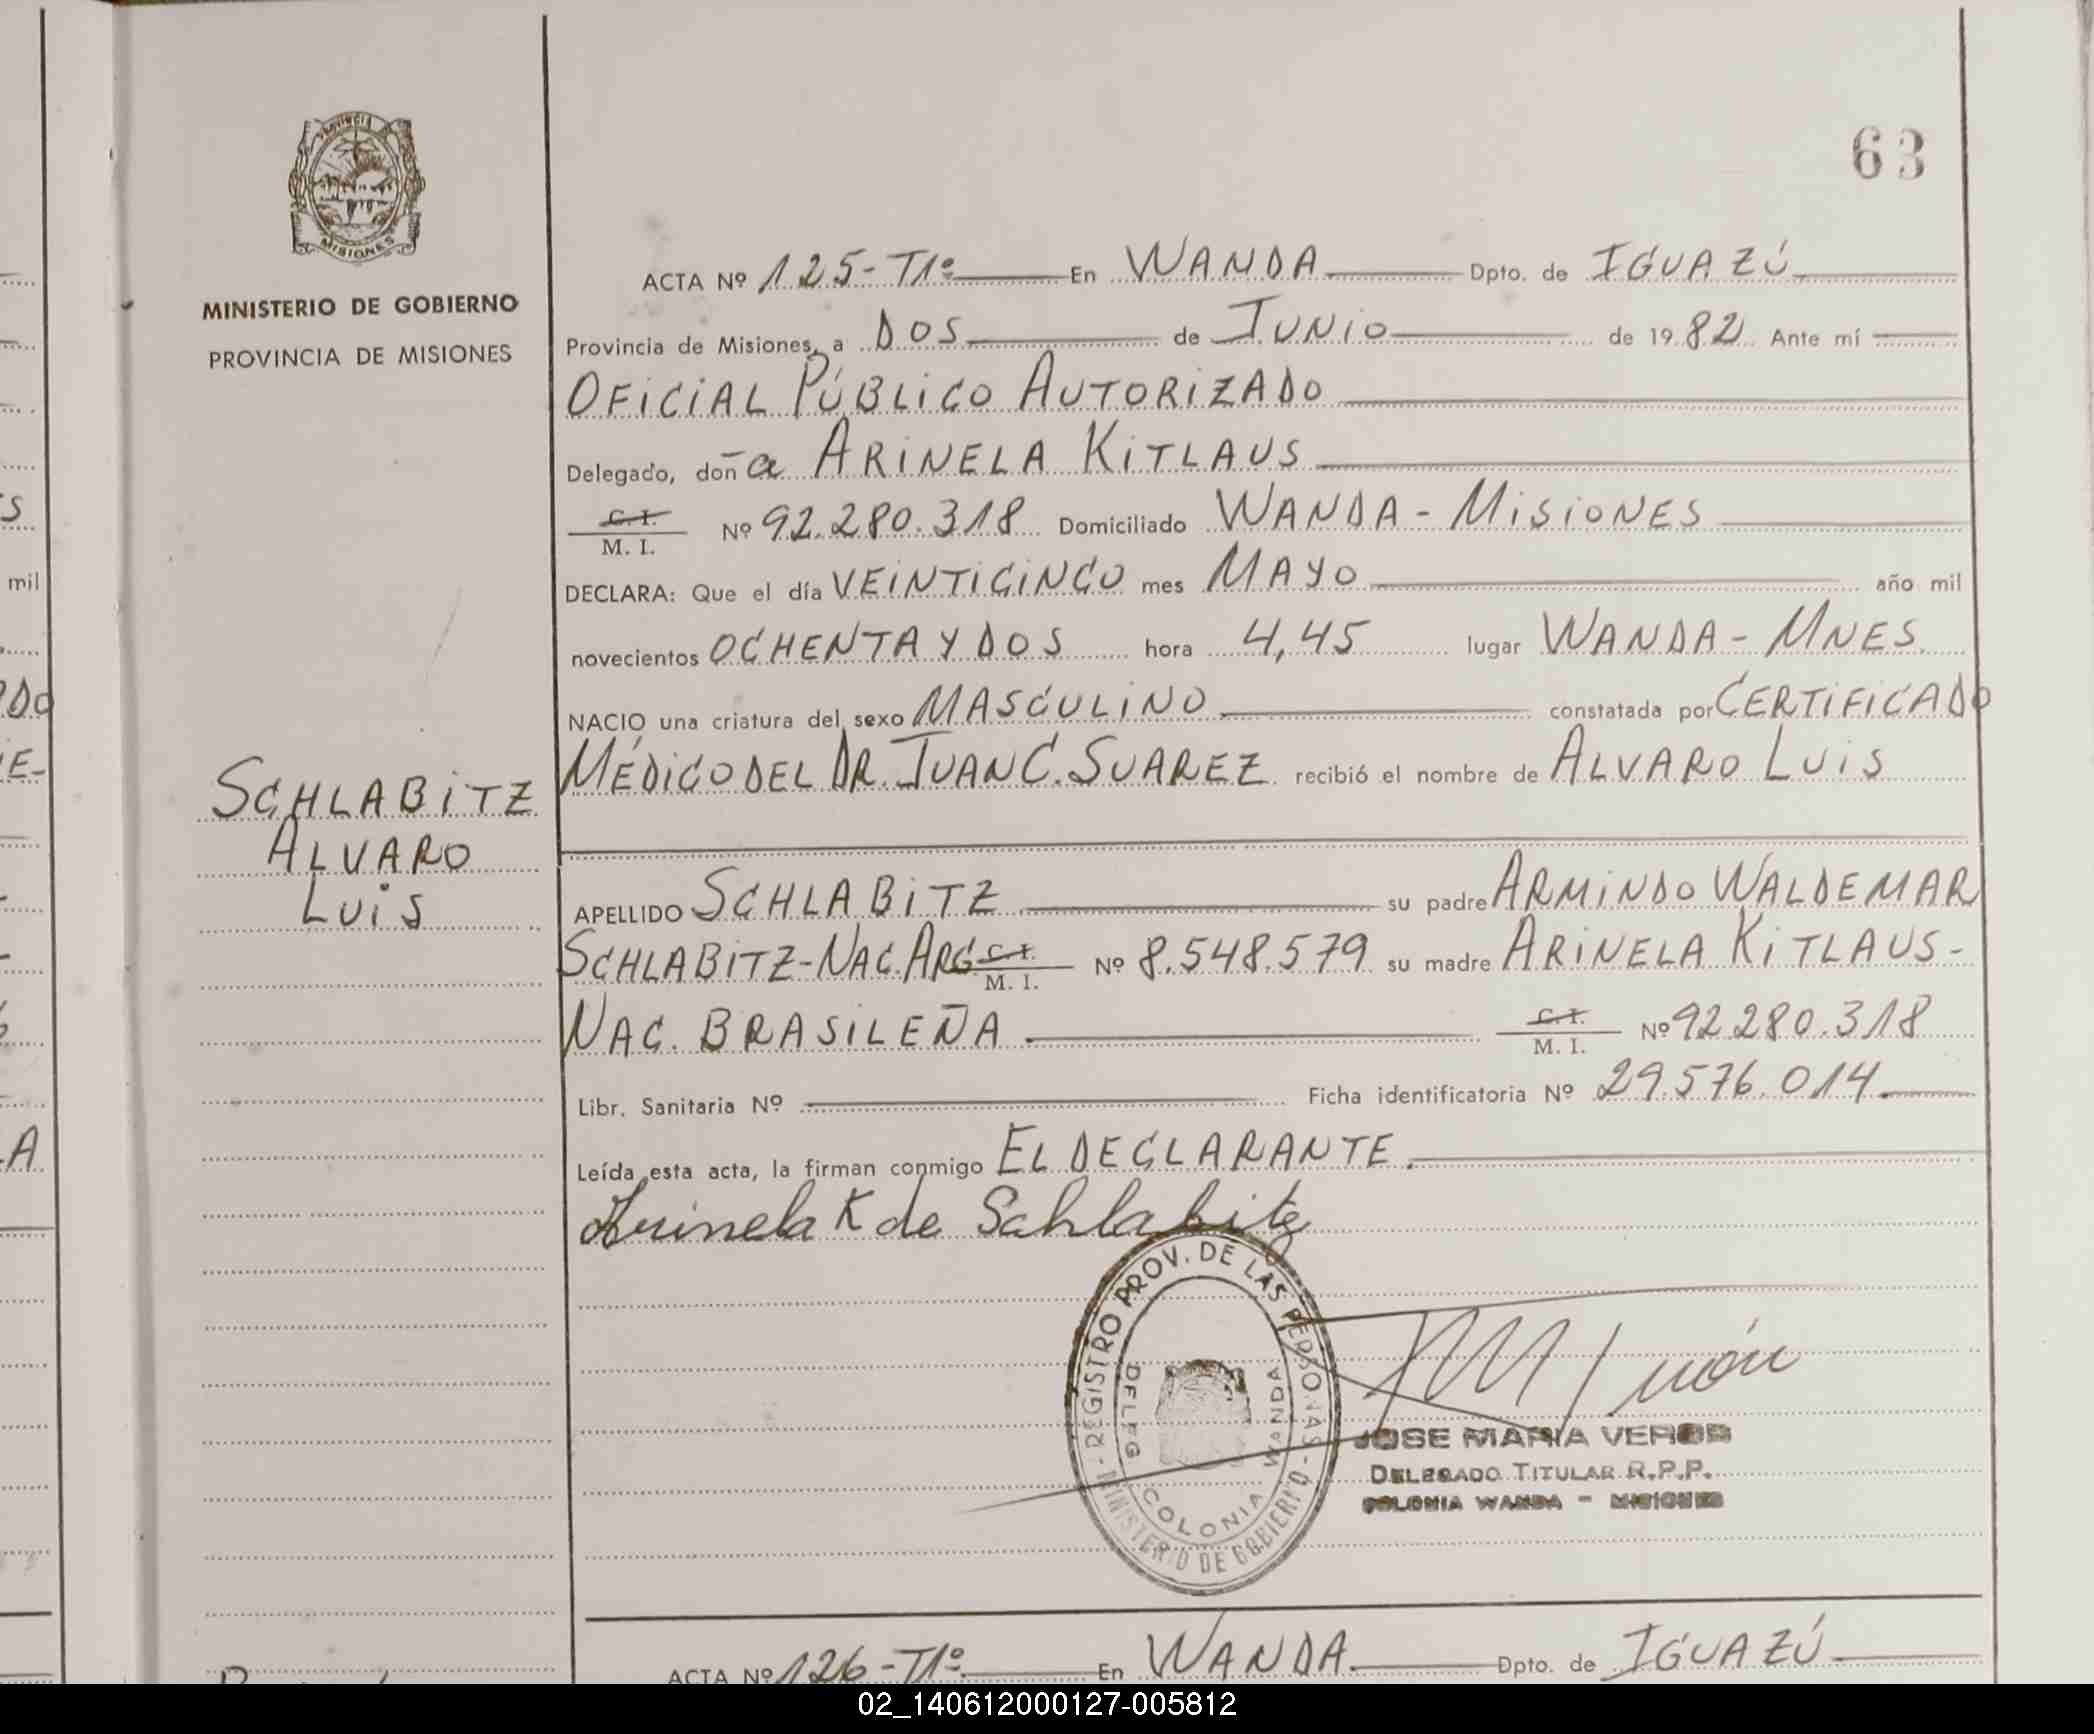 63
PROVINCIA
MISIONES
MINISTERIO DE GOBIERNO
PROVINCIA DE MISIONES
ACTA Nº 125-T1º En WANDA Dpto. de IGUAZÚ
Provincia de Misiones, a DOS de JUNIO de 1982 Ante mí
OFICIAL PÚBLICO AUTORIZADO
Delegado, doña ARINELA KITLAUS
C. I.
M. I. Nº 92.280.318 Domiciliado WANDA - MISIONES
DECLARA: Que el día VEINTICINCO mes MAYO año mil
novecientos OCHENTA Y DOS hora 4,45 lugar WANDA - MNES.
NACIO una criatura del sexo MASCULINO constatada por CERTIFICADO
MÉDICO DEL DR. JUAN C. SUAREZ recibió el nombre de ALVARO LUIS
SCHLABITZ
ALVARO
LUIS
APELLIDO SCHLABITZ su padre ARMINDO WALDEMAR
SCHLABITZ-NAC. ARG C. I.
M. I. Nº 8.548.579 su madre ARINELA KITLAUS-
NAC. BRASILEÑA C. I.
M. I. Nº 92.280.318
Libr. Sanitaria Nº Ficha identificatoria Nº 29.576.014
Leída esta acta, la firman conmigo EL DECLARANTE.
Arinela K de Schlabitz
REGISTRO PROV. DE LAS PERSONAS - MINISTERIO DE GOBIERNO
DELEG COLONIA WANDA
JOSE MARIA
DELEGADO TITULAR R.P.P.
COLONIA WANDA - MISIONES
ACTA Nº 126-T1º En WANDA Dpto. de IGUAZÚ
mil
02_140612000127-005812